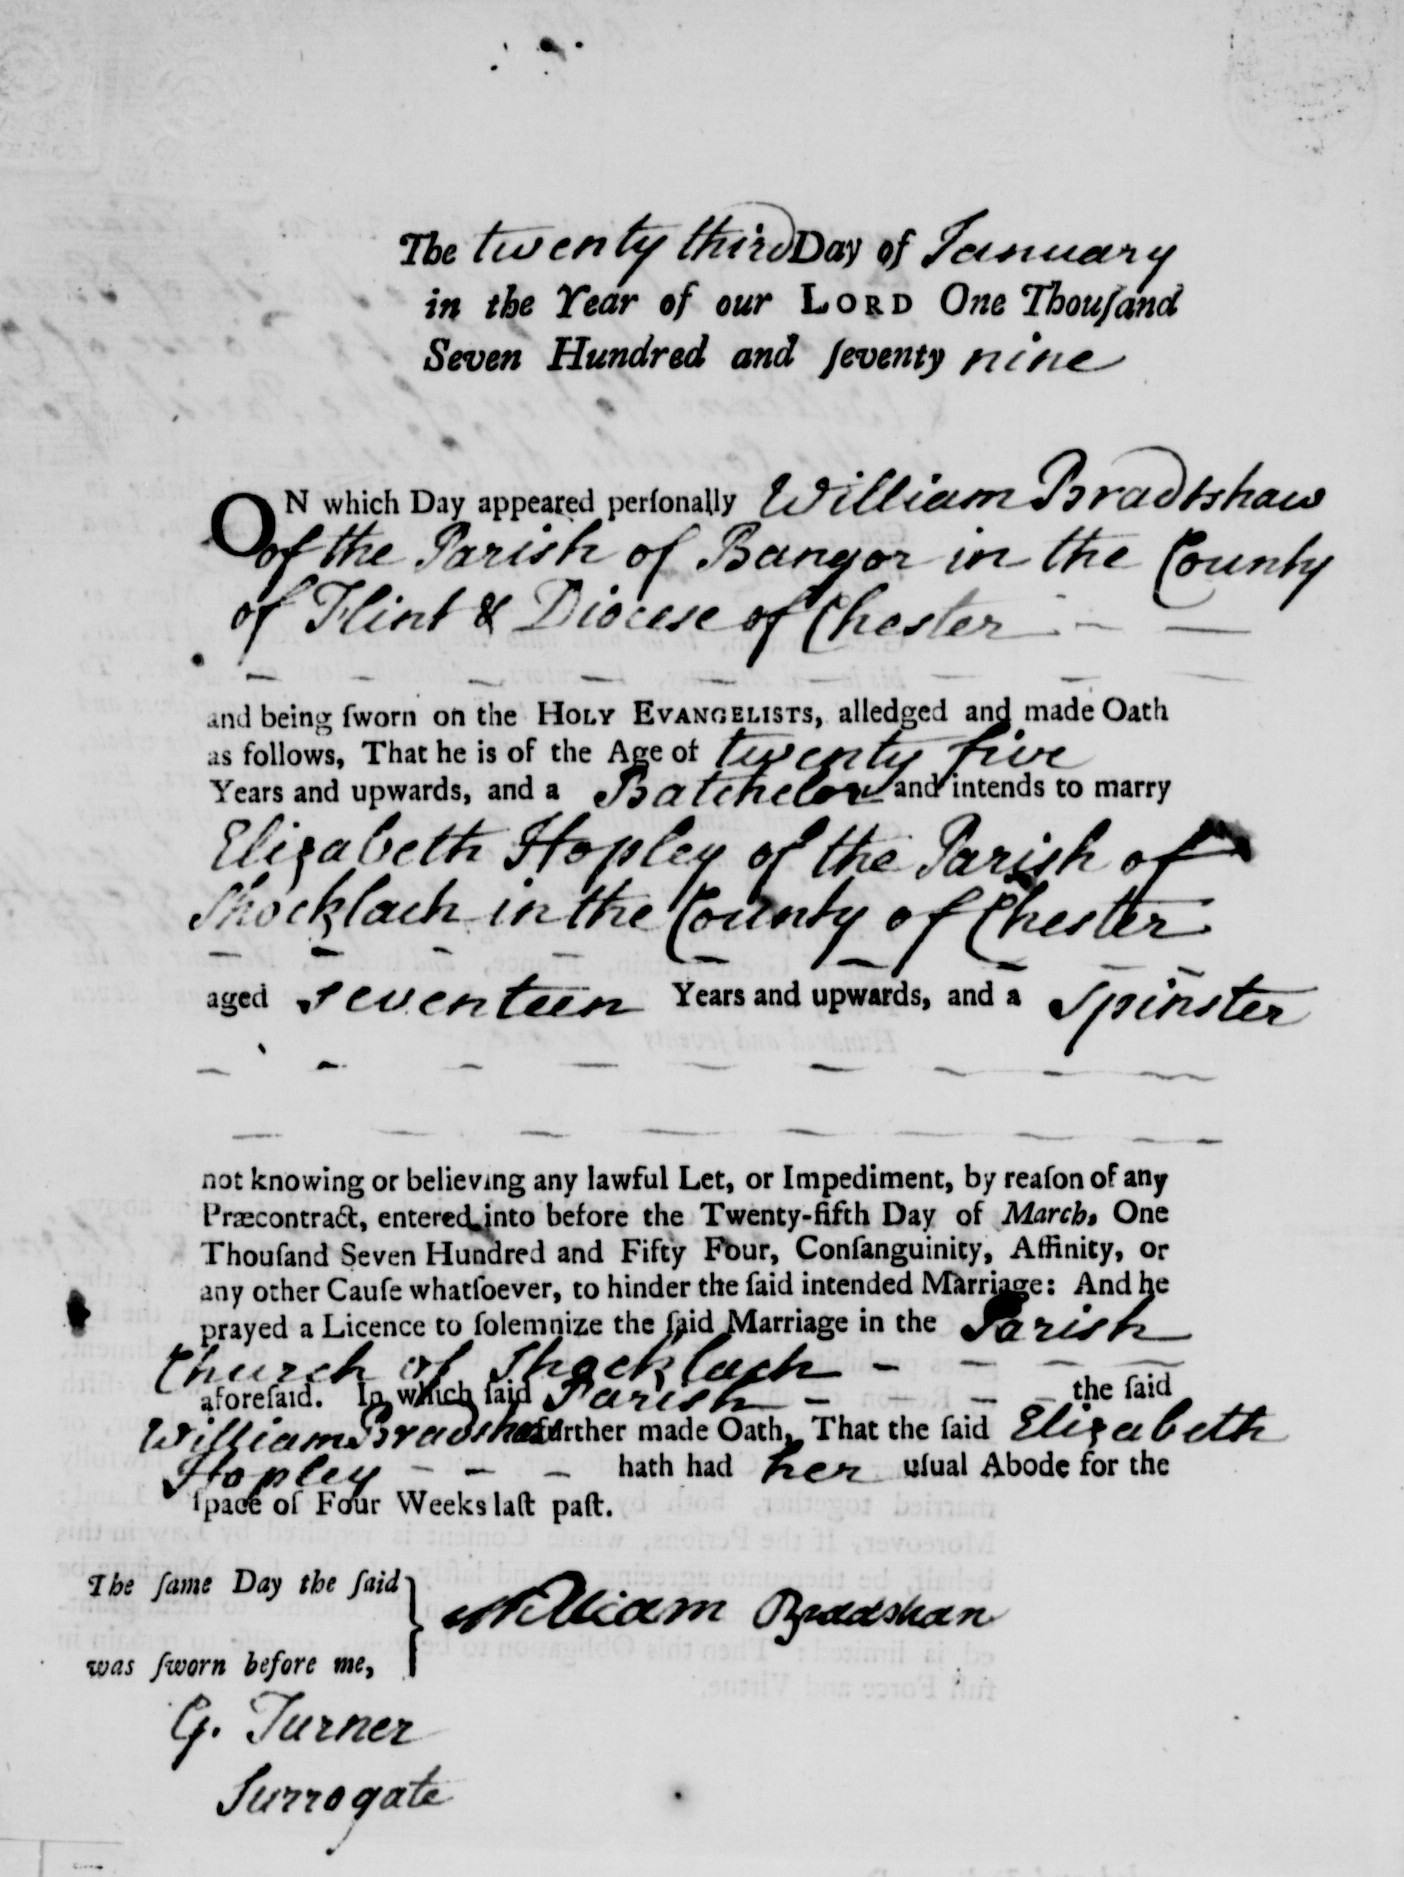 The twenty third Day of January
in the Year of our LORD One Thouſand
Seven Hundred and ſeventy nine
ON which Day appeared perſonally William Bradshaw
of the Parish of Bangor in the County
of Flint & Diocese of Chester
and being ſworn on the HOLY EVANGELISTS, alledged and made Oath
as follows, That he is of the Age of twenty five
Years and upwards, and a Batchelor and intends to marry
Elizabeth Hopley of the Parish of
Shocklach in the County of Chester
aged seventeen Years and upwards, and a Spinster
not knowing or believing any lawful Let, or Impediment, by reaſon of any
Præcontract, entered into before the Twenty-fifth Day of March, One
Thouſand Seven Hundred and Fifty Four, Conſanguinity, Affinity, or
any other Cauſe whatſoever, to hinder the ſaid intended Marriage: And he
prayed a Licence to ſolemnize the ſaid Marriage in the Parish
Church of Shocklach
aforeſaid. In which ſaid Parish the ſaid
William Bradshaw further made Oath, That the ſaid Elizabeth
Hopley hath had her uſual Abode for the
ſpace of Four Weeks laſt paſt.
The ſame Day the ſaid
William Bradshaw
was ſworn before me,
G. Turner
Surrogate